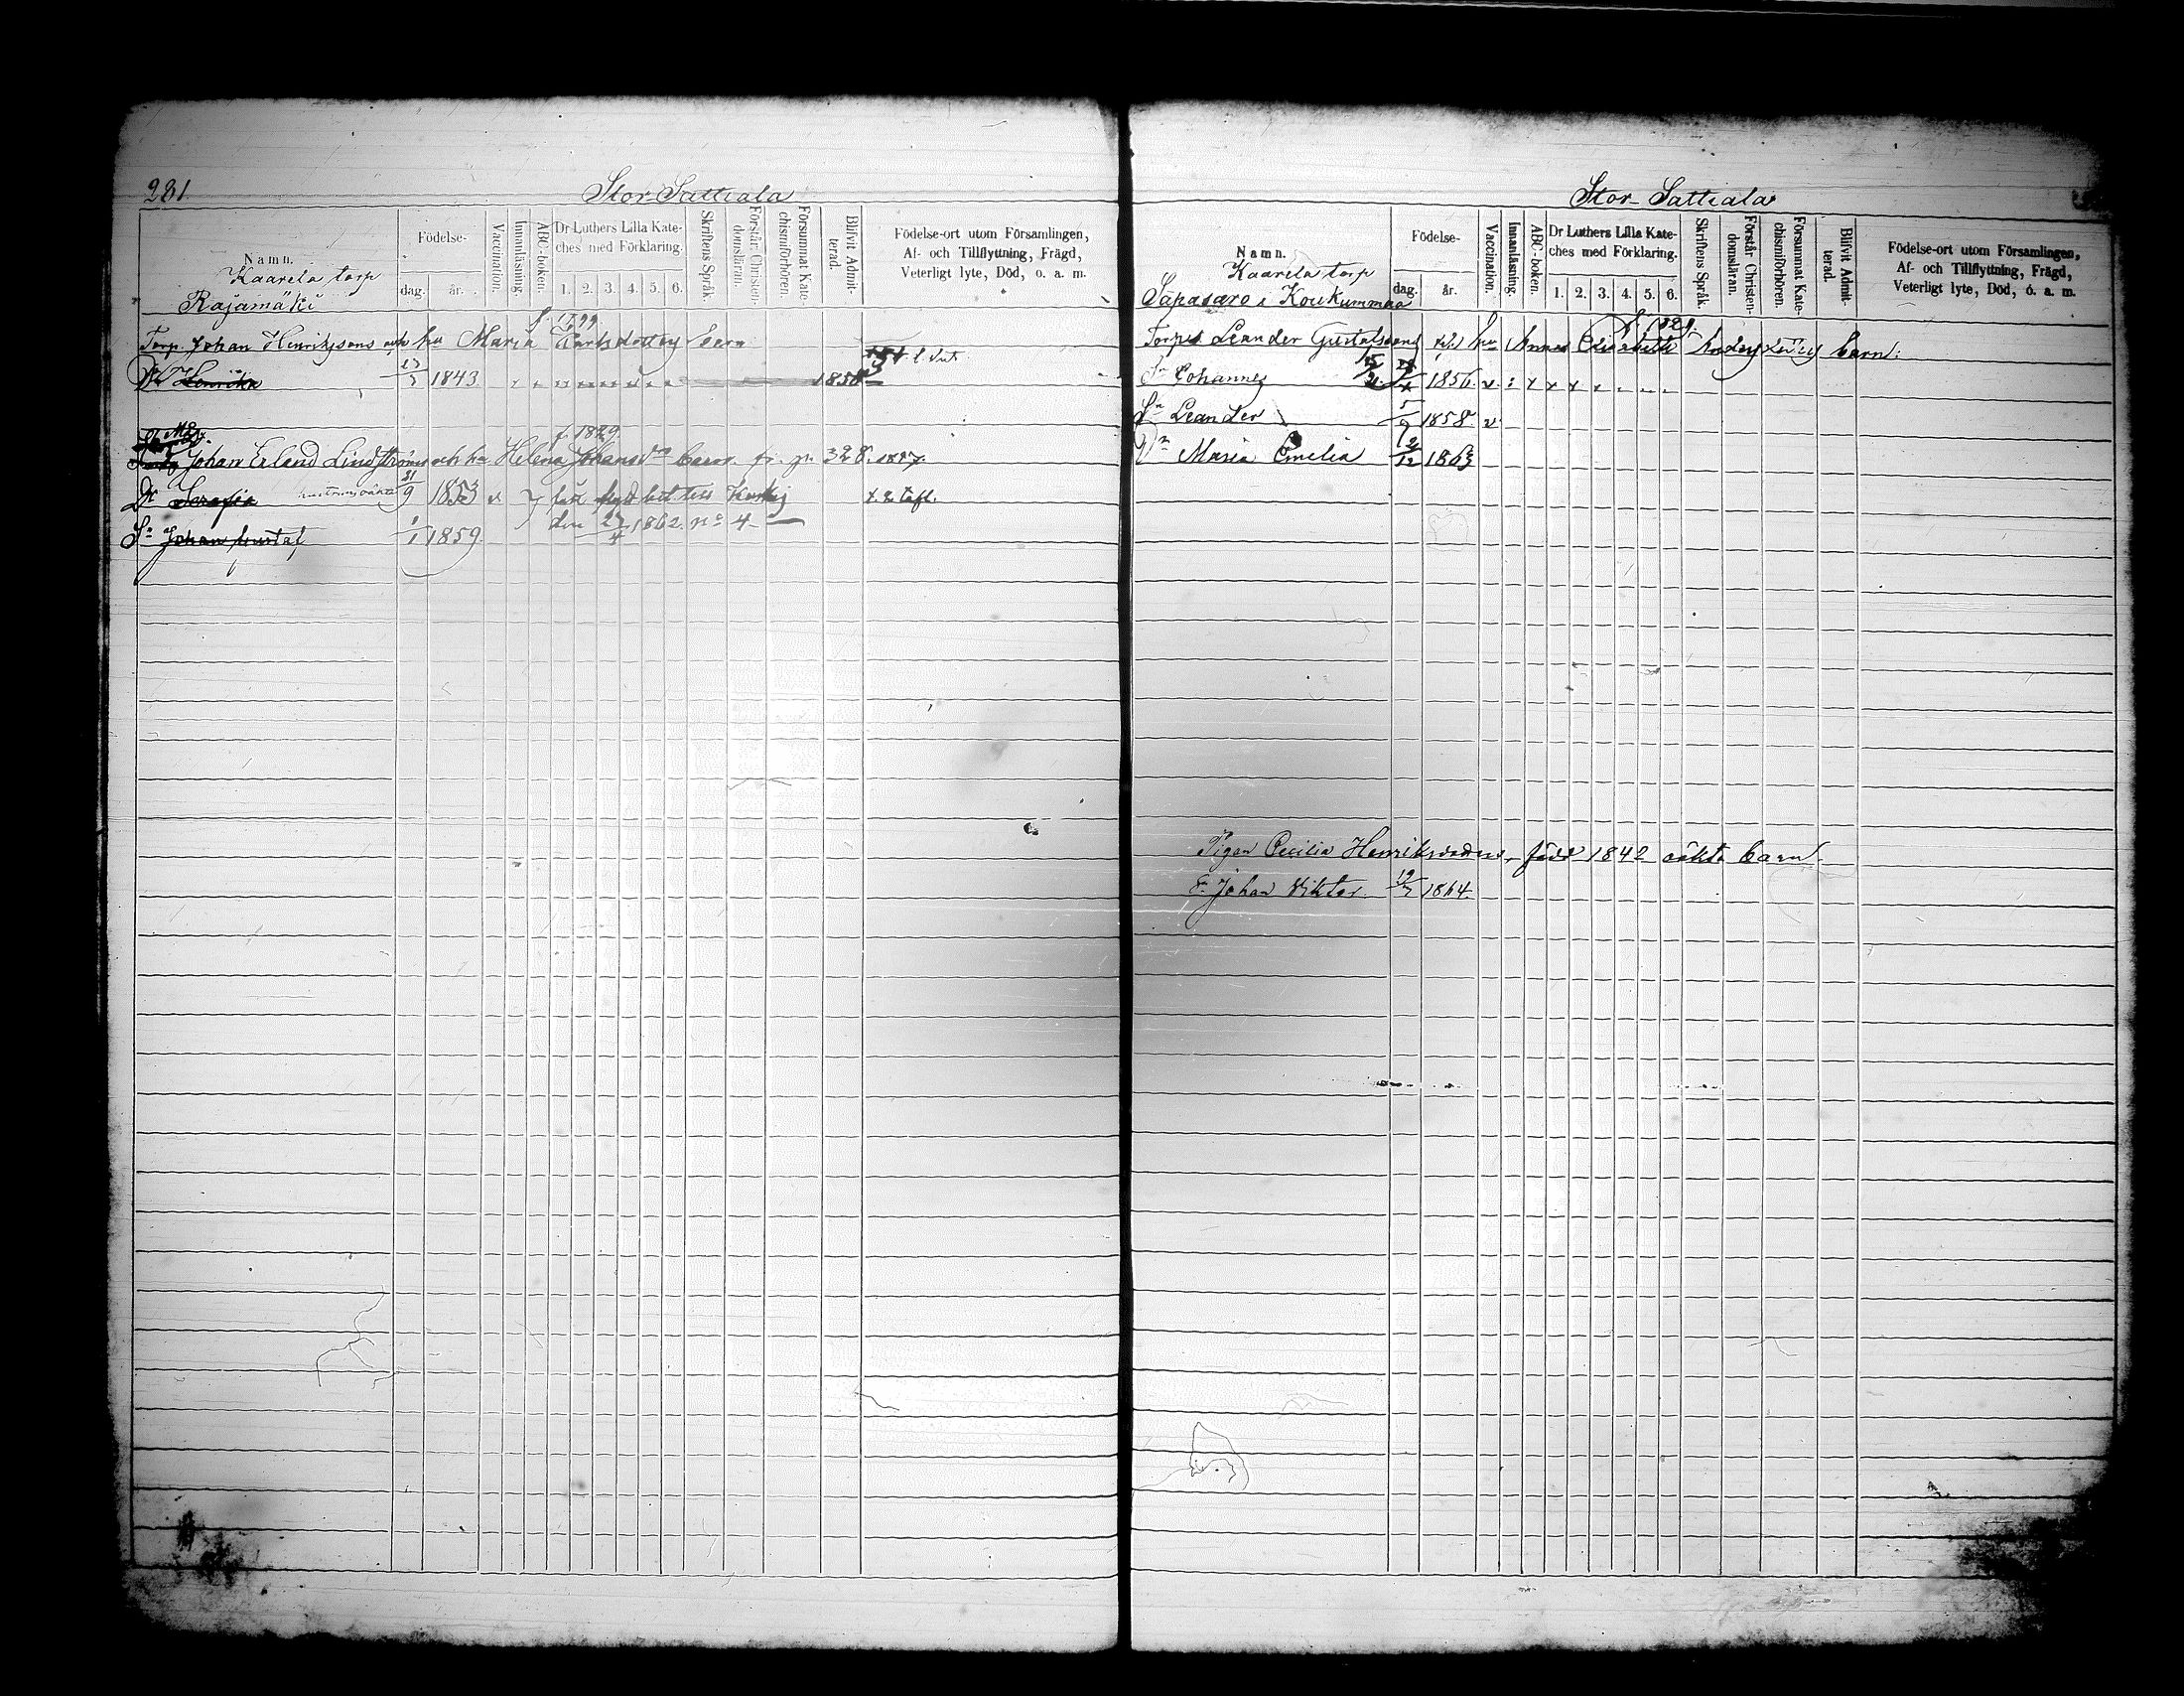 281.
Stor-Sattiala
Namn.
Kaarela torp
Rajamäki
Födelse-
dag.
år.
Vaccination.
Innanläsning.
ABC-boken.
Dr Luthers Lilla Kate-
ches med Förklaring.
1. 2. 3. 4. 5. 6.
Skriftens Språk.
Förstår Christen-
domsläran.
Försummat Kate-
chismiförhören.
Blifvit Admit-
terad.
Födelse-ort utom Församlingen,
Af- och Tillflyttning, Frägd,
Veterligt lyte, Död, o. a. m.
f. 1799
Torp. Johan Henrikssons och hu Maria Karlsdotters barn
1843 1858
f. 1829.
Johan Erland Lindströms och hu Helena Johans barn. fr. 328. 1857.
Dr Serafia 9 1853
den 27/4 1862. no 4
Sn Johan Gustaf 1/1 1859
Stor-Sattiala
Namn.
Kaarela torp
i Koukunmaa
Födelse-
dag.
år.
Vaccination.
Innanläsning.
ABC-boken.
Dr Luthers Lilla Kate-
ches med Förklaring.
1. 2. 3. 4. 5. 6.
Skriftens Språk.
Förstår Christen-
domsläran.
Försummat Kate-
chismiförhören.
Blifvit Admit-
terad.
Födelse-ort utom Församlingen,
Af- och Tillflyttning, Frägd,
Veterligt lyte, Död, o. a. m.
f. 1829.
Leander Gustafssons hu Anna Elisabeth barn:
Sn Johannes 1856.
Sn Leander 5/9 1858
Maria Emelia 2/12 1863
Pigan Cecilia född 1842 barn
Sn Johan Viktor 19/7 1864.